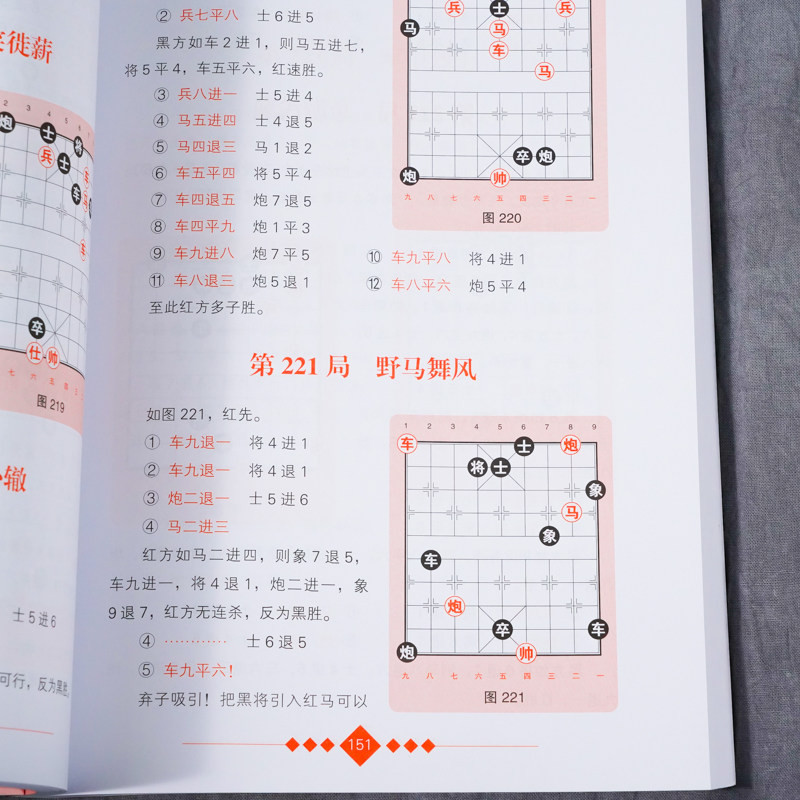 笑徙薪
2 3 4 5 6
炮 士 将
兵 士
车
车
卒
仕 帅
七 六 五 四 三
图 219
小辙
士 5 进 6
可行，反为黑胜。
② 兵七平八 士 6 进 5
黑方如车 2 进 1，则马五进七，
将 5 平 4，车五平六，红速胜。
③ 兵八进一 士 5 进 4
④ 马五进四 士 4 退 5
⑤ 马四退三 马 1 退 2
⑥ 车五平四 将 5 平 4
⑦ 车四退五 炮 7 退 5
⑧ 车四平九 炮 1 平 3
⑨ 车九进八 炮 7 平 5
⑩ 车九平八 将 4 进 1
⑪ 车八退三 炮 5 退 1
⑫ 车八平六 炮 5 平 4
至此红方多子胜。
兵 士 兵
马 马
车
马
卒 炮
炮 帅
九 八 七 六 五 四 三 二 一
图 220
第 221 局 野马舞风
如图 221，红先。
① 车九退一 将 4 进 1
② 车九退一 将 4 退 1
③ 炮二退一 士 5 进 6
④ 马二进三
红方如马二进四，则象 7 退 5，
车九进一，将 4 退 1，炮二进一，象
9 退 7，红方无连杀，反为黑胜。
④ ………… 士 6 退 5
⑤ 车九平六！
弃子吸引！把黑将引入红马可以
1 2 3 4 5 6 7 8 9
车 士 炮
将 士
象
马
象
车
炮
卒 车
炮 帅
九 八 七 六 五 四 三 二 一
图 221
151